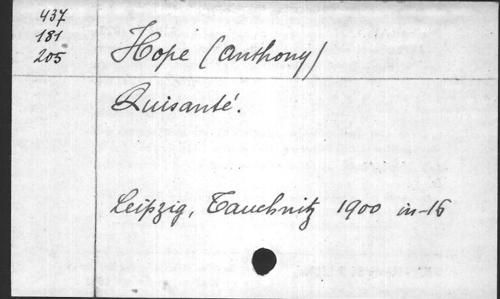 437
181
205
Hope (Anthony)
Quisanté.
Leipzig, Tauchnitz 1900 in-16